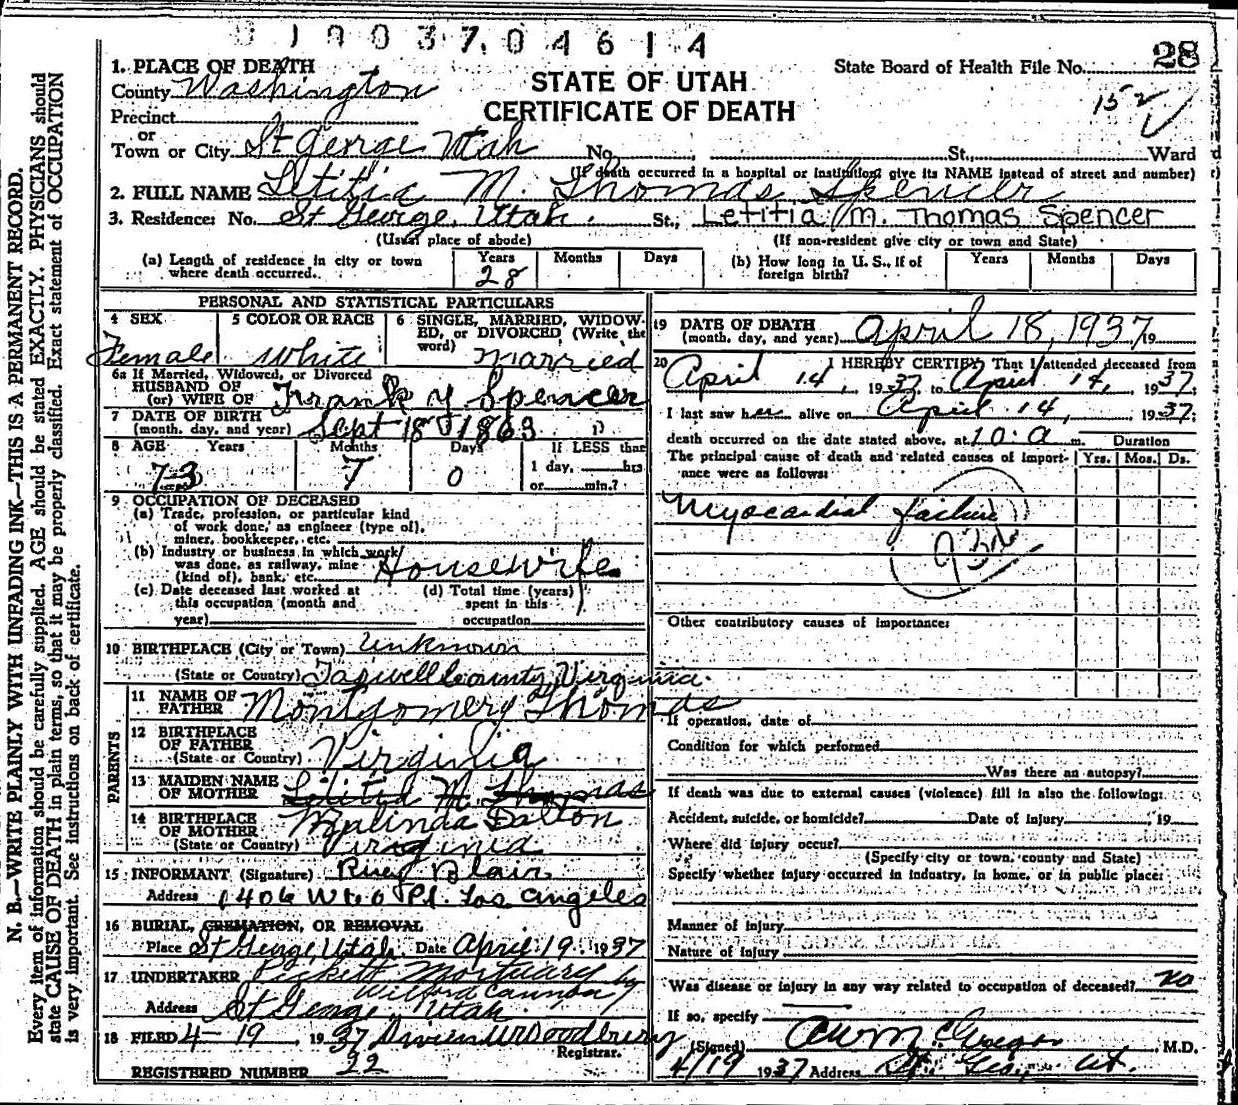 1 9 0 3 7 0 4 6 1 4
28
1. PLACE OF DEATH
STATE OF UTAH
State Board of Health File No.
County Washington
CERTIFICATE OF DEATH
152
Precinct
or
Town or City St George Utah No. , St., Ward
(If death occurred in a hospital or institution, give its NAME instead of street and number)
2. FULL NAME Letitia M. Thomas Spencer
3. Residence: No. St George, Utah. St., Letitia M. Thomas Spencer
(Usual place of abode) (If non-resident give city or town and State)
(a) Length of residence in city or town where death occurred. Years 28 Months Days
(b) How long in U. S., if of foreign birth? Years Months Days
PERSONAL AND STATISTICAL PARTICULARS
4 SEX Female
5 COLOR OR RACE White
6 SINGLE, MARRIED, WIDOWED, or DIVORCED (Write the word) Married
6a If Married, Widowed, or Divorced
HUSBAND OF
(or) WIFE OF Frank Y Spencer
7 DATE OF BIRTH
(month, day, and year) Sept 18 1863
8 AGE Years Months Days If LESS than
73 7 0 1 day, hrs
or min.?
9 OCCUPATION OF DECEASED
(a) Trade, profession, or particular kind
of work done, as engineer (type of),
miner, bookkeeper, etc.
(b) Industry or business in which work
was done, as railway, mine
(kind of), bank, etc. Housewife
(c) Date deceased last worked at
this occupation (month and
year)
(d) Total time (years)
spent in this
occupation
10 BIRTHPLACE (City or Town) Unknown
(State or Country) Taswell County, Virginia.
PARENTS
11 NAME OF
FATHER Montgomery Thomas
12 BIRTHPLACE
OF FATHER
(State or Country) Virginia
13 MAIDEN NAME
OF MOTHER Letitia M. Thomas
Malinda Dalton
14 BIRTHPLACE
OF MOTHER
(State or Country) Virginia
15 INFORMANT (Signature) Blair
Address Pl. Los Angeles
16 BURIAL, CREMATION, OR REMOVAL
Place St George, Utah. Date April 19 1937
17 UNDERTAKER Pickett Mortuary by
Wilford Cannon
Address St George, Utah
18 FILED 4-19 1937 Woodbury
Registrar.
REGISTERED NUMBER 22
19 DATE OF DEATH
(month, day, and year) April 18, 1937 19
20 I HEREBY CERTIFY, That I attended deceased from
April 14, 1937 to April 14, 1937.
I last saw her alive on April 14, 1937.
death occurred on the date stated above, at 10:a m.
Duration
The principal cause of death and related causes of importance were as follows:
Yrs. Mos. Ds.
Myocardial failure
Other contributory causes of importance:
If operation, date of
Condition for which performed
Was there an autopsy?
If death was due to external causes (violence) fill in also the following:
Accident, suicide, or homicide? Date of injury , 19
Where did injury occur?
(Specify city or town, county and State)
Specify whether injury occurred in industry, in home, or in public place:
Manner of injury
Nature of injury
Was disease or injury in any way related to occupation of deceased? no
If so, specify
(Signed) McGregor , M.D.
4/19 1937 Address St. Geo., Ut.
N. B.—WRITE PLAINLY WITH UNFADING INK—THIS IS A PERMANENT RECORD.
Every item of information should be carefully supplied. AGE should be stated EXACTLY. PHYSICIANS should
state CAUSE OF DEATH in plain terms, so that it may be properly classified. Exact statement of OCCUPATION
is very important. See instructions on back of certificate.